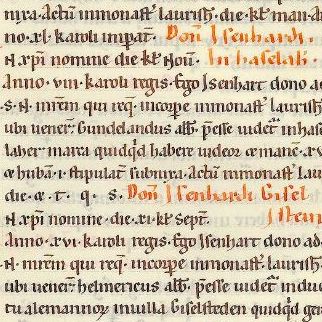 nixa. Actū in monast̄ laurisħ. die. kł. mar. A
no. xl. karoli impat̄. Don̄ Isenhardi.
N xpī nomine die. kł. Nou̅. In haselah.
Anno. viii. karoli regis. Ego Isenhart dono ad
.S. N. mrēm qui req̄. incorpe in monast̄. laurisħ
ubi uener̄. Gundelandus abb̄. p̄esse uidet̄ in has
laher marca quidq̄d habere uideor
hubā. i. stipulat̄ subnixa. Actū in monast̄ laur
die. & t. q. s. Don̄ Isenhardi. Gisel
N xpī nomine. die. xi. kł. Sept̄.
Anno. xvi. karoli regis. Ego Isenhart dono ad.
.N. mrēm qui req̄. incorpe in monast̄. laurisħ.
ubi uener̄. helmericus abb̄. p̄esse uidet̄
tu alemannor̄ in uilla Giselsteden quidq̄d